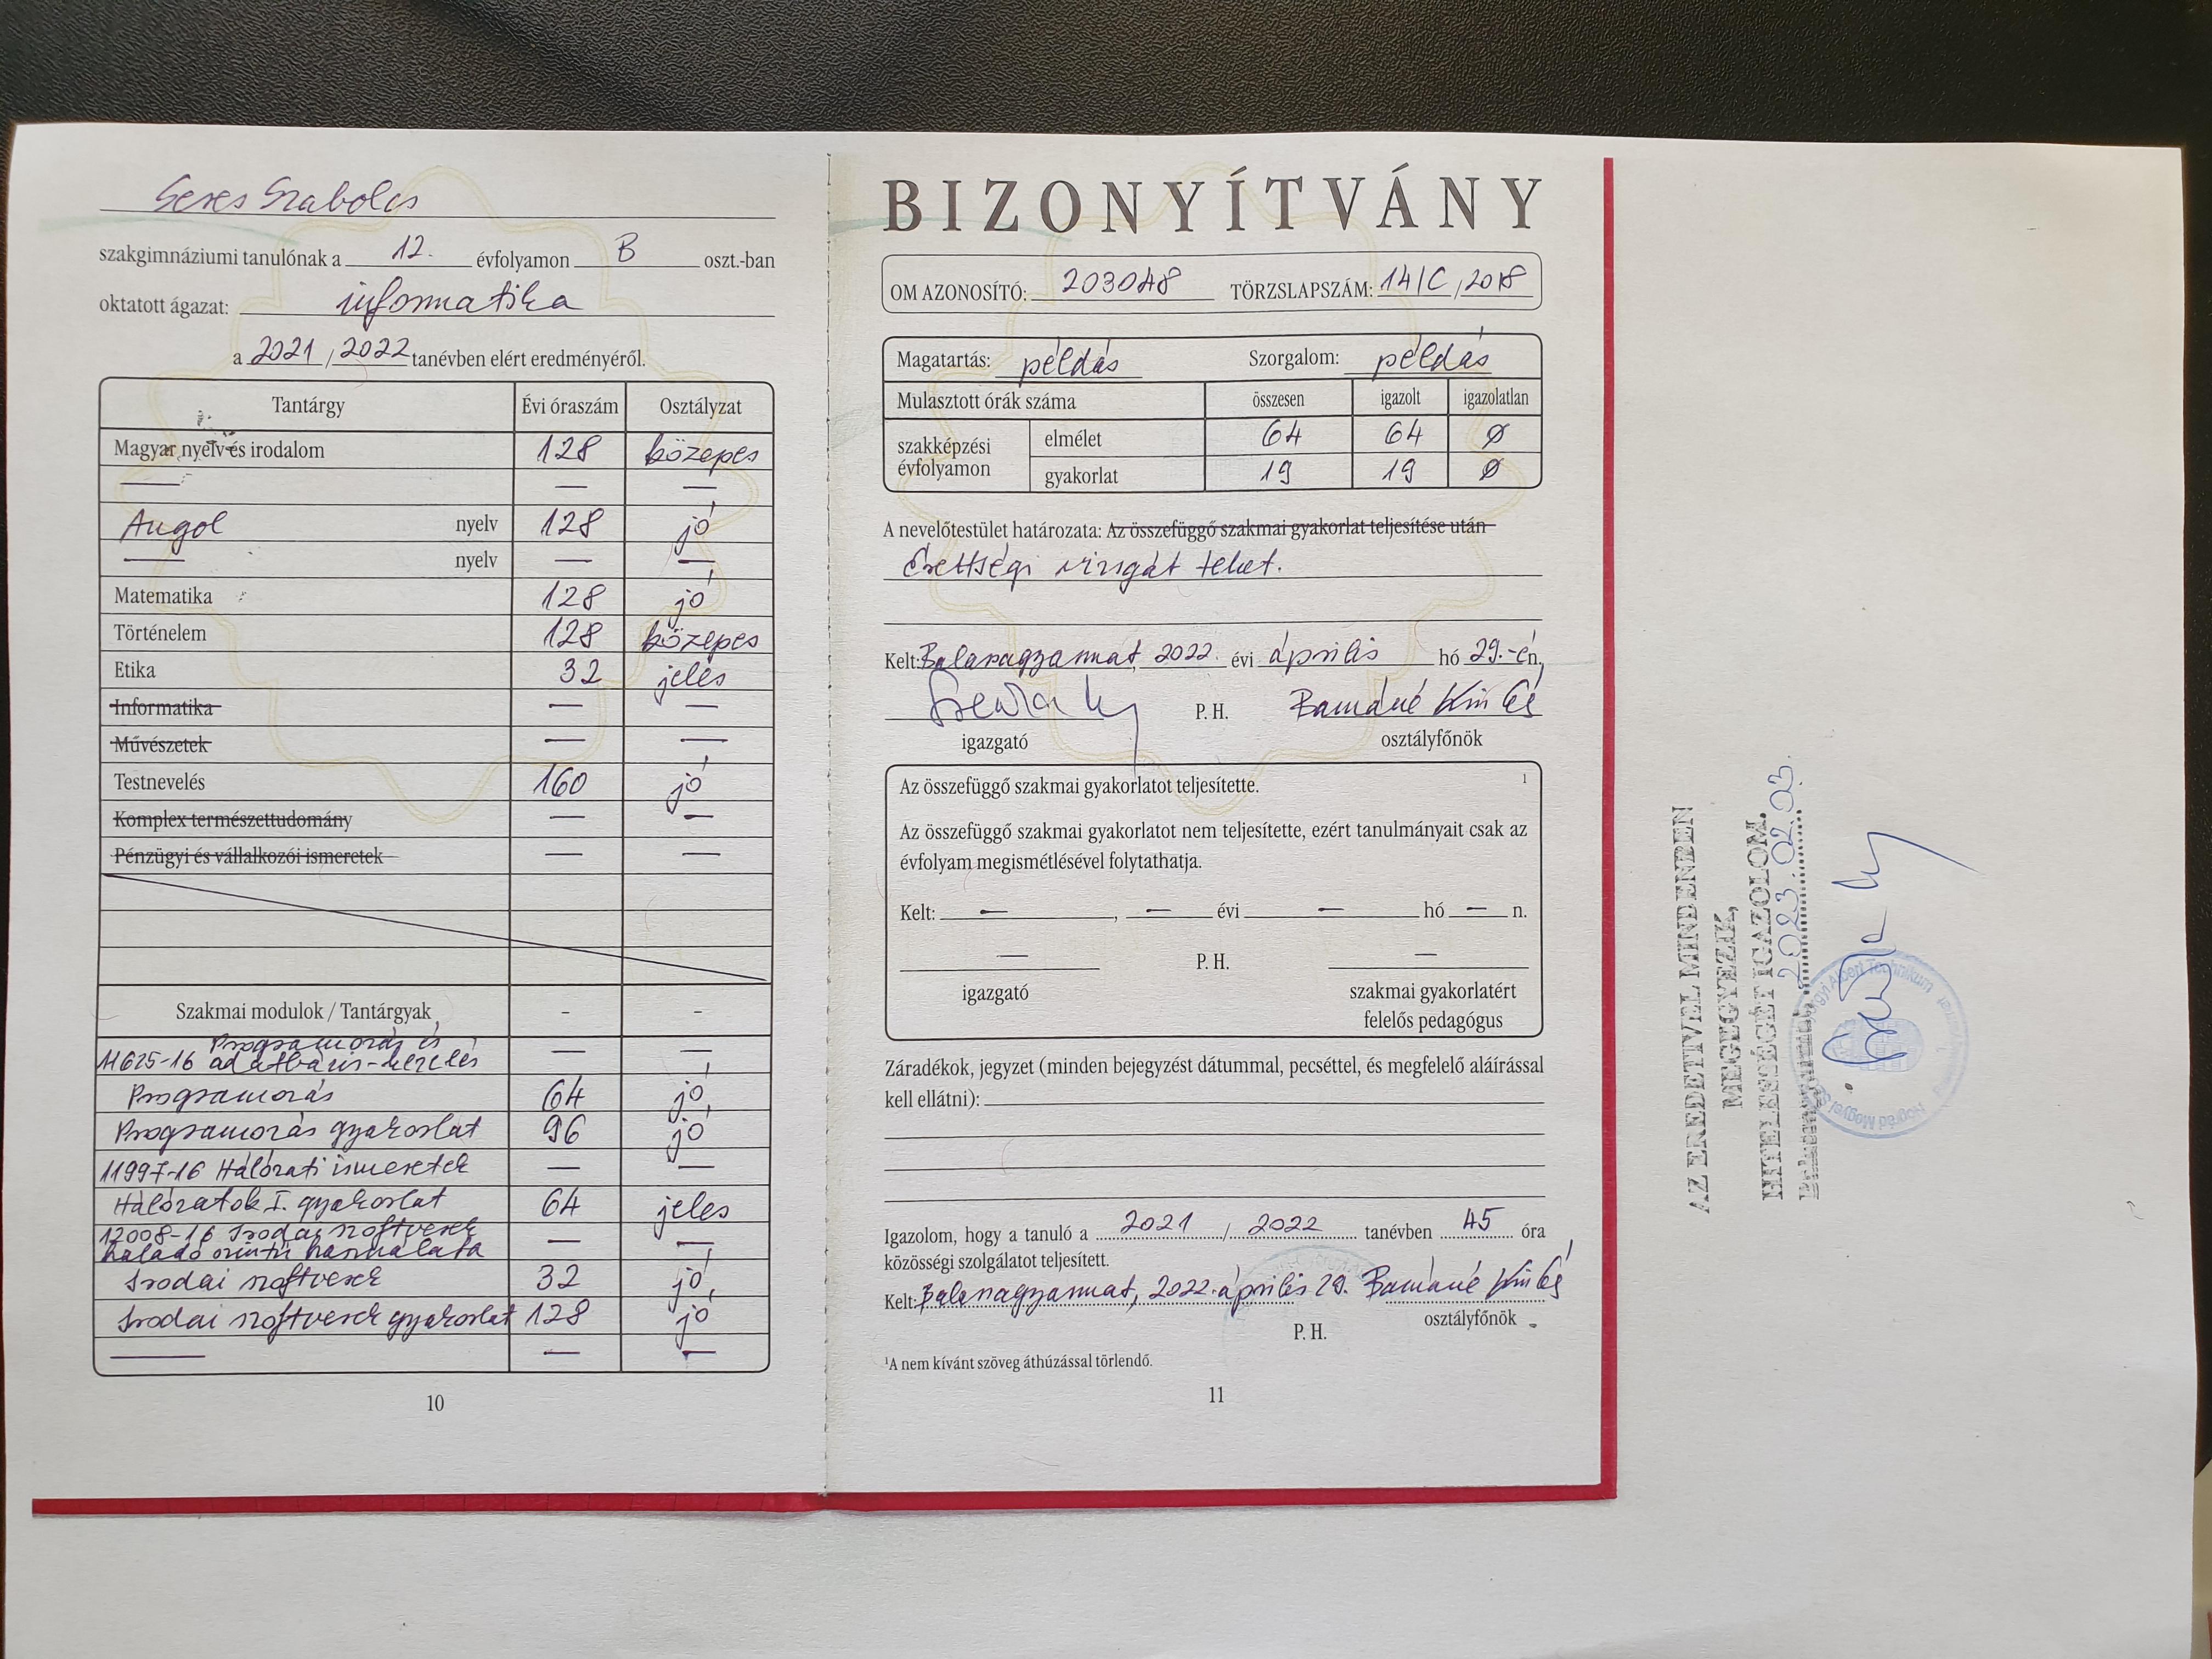 Seres Szabolcs
szakgimnáziumi tanulónak a 12. évfolyamon B oszt.-ban
oktatott ágazat: informatika
a 2021 / 2022 tanévben elért eredményéről.
Tantárgy Évi óraszám Osztályzat
Magyar nyelv és irodalom 128 közepes
— — —
Angol nyelv 128 jó
— nyelv — —
Matematika 128 jó
Történelem 128 közepes
Etika 32 jeles
Informatika — —
Művészetek — —
Testnevelés 160 jó
Komplex természettudomány — —
Pénzügyi és vállalkozói ismeretek — —
Szakmai modulok / Tantárgyak - -
Programozás és
11625-16 adatbázis-kezelés — —
Programozás 64 jó
Programozás gyakorlat 96 jó
11997-16 Hálózati ismeretek — —
Hálózatok I. gyakorlat 64 jeles
12008-16 Irodai szoftverek
haladó szintű használata — —
Irodai szoftverek 32 jó
Irodai szoftverek gyakorlat 128 jó
— — —
10
BIZONYÍTVÁNY
OM AZONOSÍTÓ: 203048 TÖRZSLAPSZÁM: 14/C / 2018
Magatartás: példás Szorgalom: példás
Mulasztott órák száma összesen igazolt igazolatlan
szakképzési évfolyamon elmélet 64 64 Ø
gyakorlat 19 19 Ø
A nevelőtestület határozata: Az összefüggő szakmai gyakorlat teljesítése után
Érettségi vizsgát tehet.
Kelt: Balassagyarmat, 2022. évi április hó 29.-én.
P. H.
igazgató osztályfőnök
Az összefüggő szakmai gyakorlatot teljesítette. 1
Az összefüggő szakmai gyakorlatot nem teljesítette, ezért tanulmányait csak az
évfolyam megismétlésével folytathatja.
Kelt: — , — évi — hó — n.
— P. H. —
igazgató szakmai gyakorlatért
felelős pedagógus
Záradékok, jegyzet (minden bejegyzést dátummal, pecséttel, és megfelelő aláírással
kell ellátni):
Igazolom, hogy a tanuló a 2021 / 2022 tanévben 45 óra
közösségi szolgálatot teljesített.
Kelt: Balassagyarmat, 2022. április 29.
P. H. osztályfőnök
¹A nem kívánt szöveg áthúzással törlendő.
11
AZ EREDETIVEL MINDENBEN
MEGEGYEZIK,
HITELESSÉGÉT IGAZOLOM.
2023.02.03.